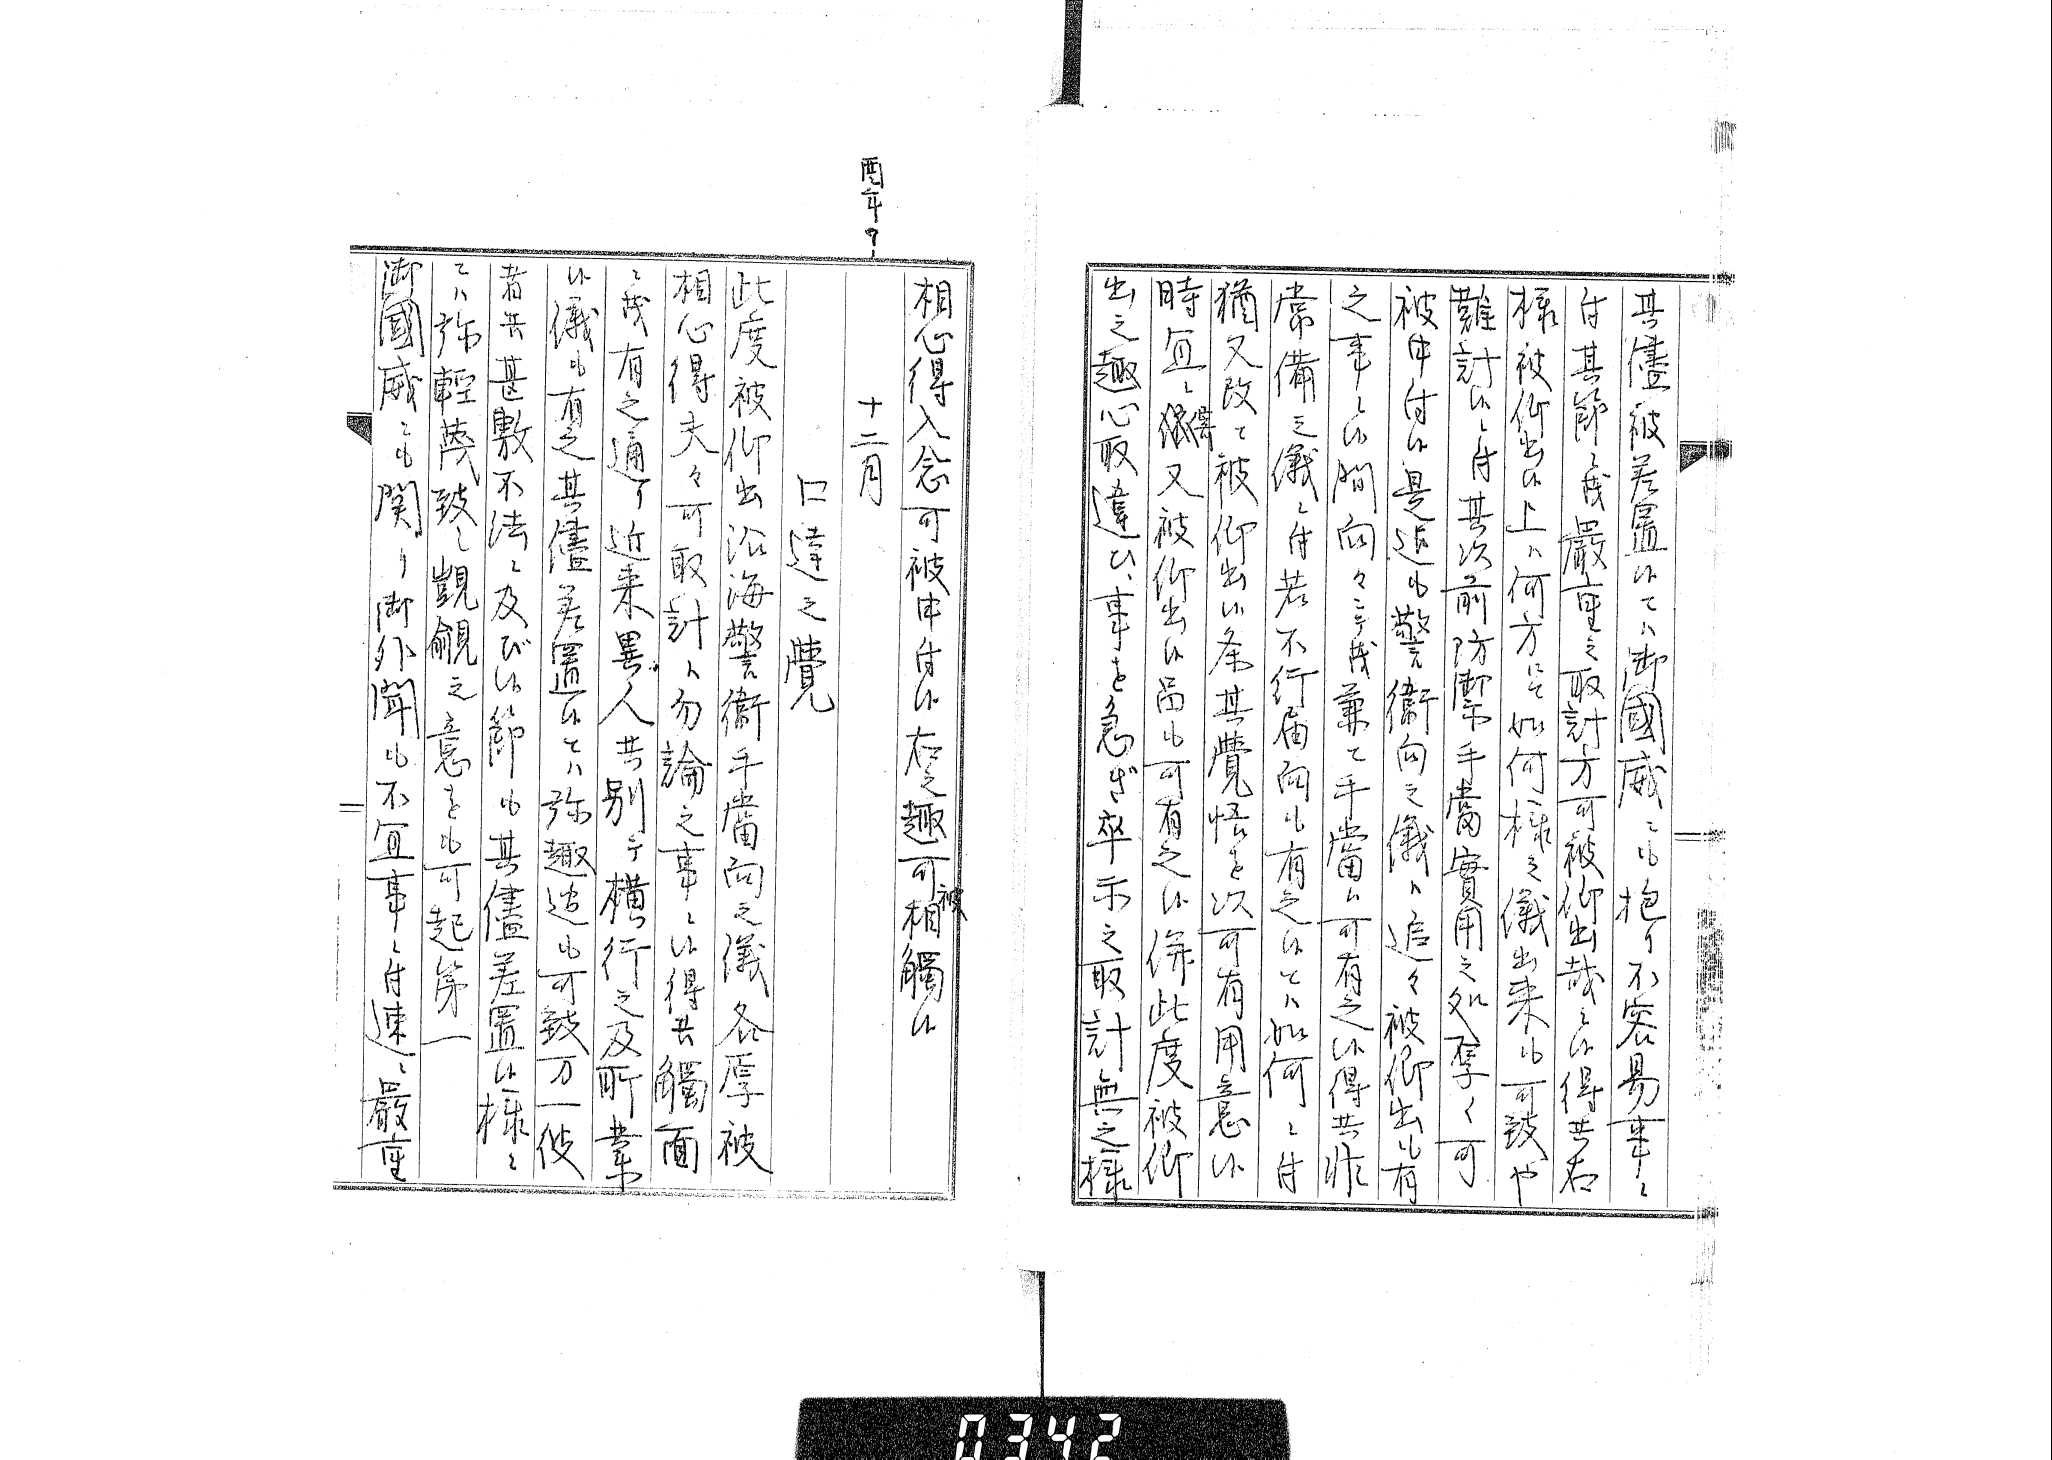 其儘被差置候てハ御國威ニも抱り不容易事ニ
付其節ニ茂嚴重之取計方可被仰出哉ニ候得共右
様被仰出候上ハ何方ニて如何様之儀出来も可致や
難計候ニ付其次前防禦手當實用之処厚く可
被申付候是迄も警衛向之儀ハ追々被仰出も有
之事ニ候間向々ニ而茂兼て手當ハ可有之候得共非
常備之儀ニ付若不行届向も有之候てハ如何ニ付
猶又改て被仰出候条其覺悟を以可有用意候
時宜ニ
得
又被仰出候品も可有之候併此度被仰
出之趣心取違ひ事を急ぎ卒示之取計無之様
相心得入念可被申付候右之趣可被相觸候
十二月
酉年
口達之覺
此度被仰出沿海警衛手當向之儀各厚被
相心得夫々可取計ハ勿論之事ニ候得共觸面
ニ茂有之通り近来異人共別而横行之及所業
候儀も有之其儘差置候てハ弥趣迄も可致万一彼
者共甚敷不法ニ及び候節も其儘差置候様ニ
てハ弥輕蔑致し覬覦之意をも可起第一
御國威ニも関り御外聞も不宜事ニ付速ニ嚴重
0342